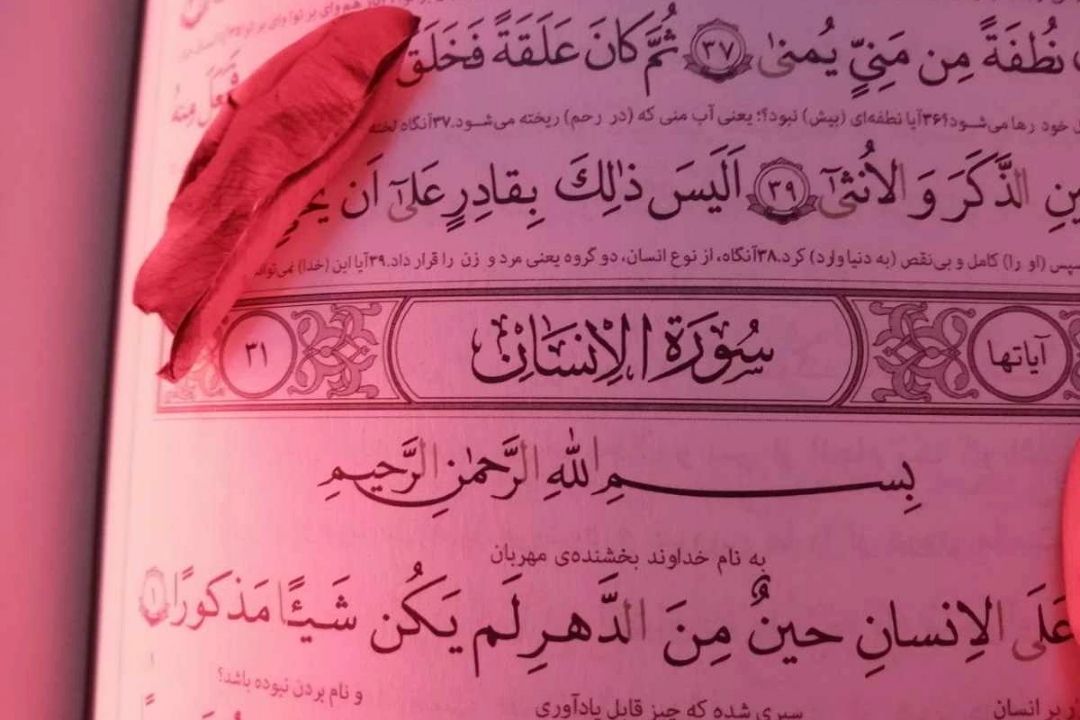 نُطْفَةً مِن مَنِيٍّ يُمنىٰ ﴿٣٧﴾ ثُمَّ كانَ عَلَقَةً فَخَلَقَ
خود رها می‌شود؟۳۶آیا نطفه‌ای (بیش) نبود؟؛ یعنی آب منی که (در رحم) ریخته می‌شود.۳۷آنگاه لخته
الذَّكَرَ وَ الاُنثىٰٓ ﴿٣٩﴾ اَلَيسَ ذٰلِكَ بِقادِرٍ عَلىٰٓ اَن
سپس (او را) کامل و بی‌نقص (به دنیا وارد) کرد.۳۸آنگاه، از نوع انسان، دو گروه یعنی مرد و زن را قرار داد.۳۹آیا این (خدا)
آياتها سُورَةُ الاِنسَانِ ٣١
بِسمِ اللهِ الرَّحمٰنِ الرَّحيمِ
به نام خداوند بخشنده‌ی مهربان
عَلَى الاِنسانِ حينٌ مِنَ الدَّهرِ لَم يَكُن شَيـًٔا مَذكورًا ﴿١﴾
و نام بردن نبوده باشد؟
بر انسان سپری شده که چیز قابل یادآوری